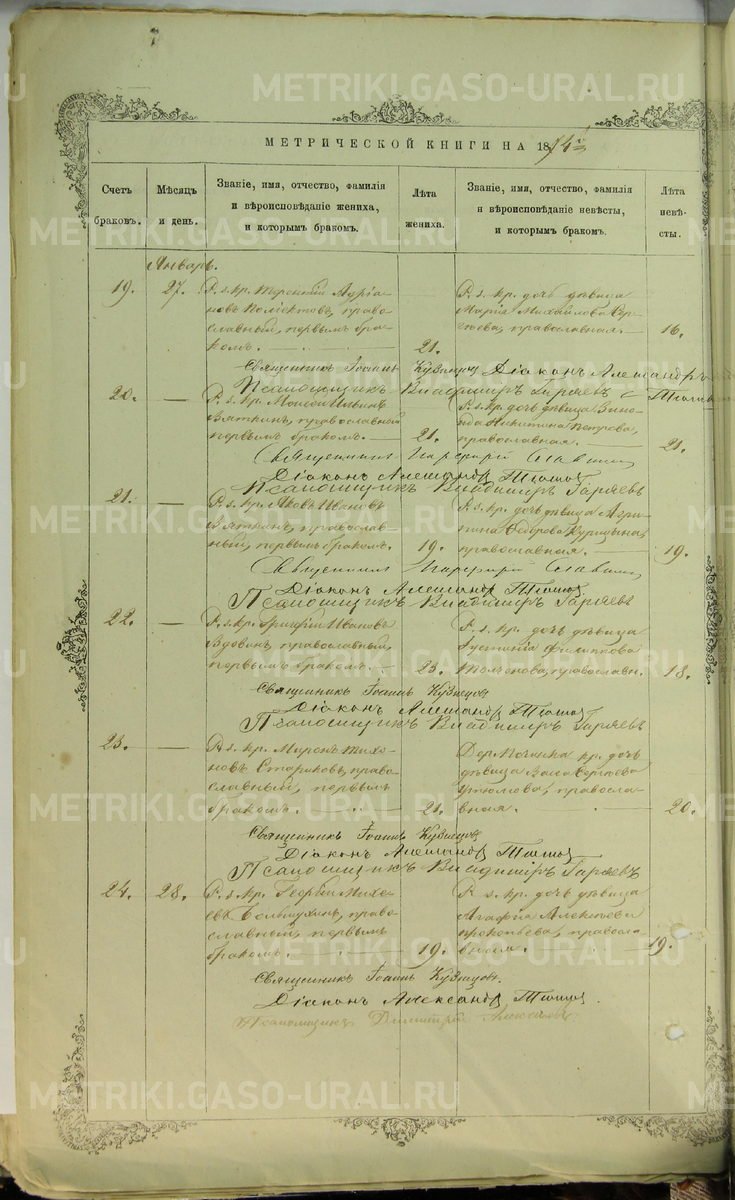 МЕТРИЧЕСКОЙ КНИГИ НА 1874й
Счетъ браковъ.
Мѣсяцъ и день.
Званіе, имя, отчество, фамилія
и вѣроисповѣданіе жениха,
и которымъ бракомъ.
Лѣта жениха.
Званіе, имя, отчество, фамилія
и вѣроисповѣданіе невѣсты,
и которымъ бракомъ.
Лѣта невѣсты.
Январь.
19. 27. Р. з. кр. Терентій Адріа-
новъ Поліектовъ, право-
славный, первымъ бра-
комъ. 21.
Р. з. кр. дочь дѣвица
Марія Михайлова
православная. 16.
Священникъ Іоаннъ Кузнецов Діаконъ Александръ
Псаломщикъ Владиміръ Гаряевъ
20. — Р. з. кр. Моисей Ильинъ
Вяткинъ, православный
первымъ бракомъ. 21.
Р. з. кр. дочь дѣвица Зино-
Никитина Петрова,
православная. 21.
Священникъ Порфирій Славнин
Діаконъ Александр
Псаломщикъ Владиміръ Гаряевъ
21. — Р. з. кр. Яковъ Ивановъ
Вяткинъ, православ-
ный, первымъ бракомъ. 19.
Р. з. кр. дочь дѣвица Агри-
пина Ѳедорова Курицына,
православная. 19.
Священникъ Порфирій Славнин
Діаконъ Александр
Псаломщикъ Владиміръ Гаряевъ
22. — Р. з. кр. Григорій Ивановъ
Вдовинъ, православный,
первымъ бракомъ. 23.
Р. з. кр. дочь дѣвица
Іустинія Филипова
православн. 18.
Священникъ Іоаннъ Кузнецов
Діаконъ Александр
Псаломщикъ Владиміръ Гаряевъ
23. — Р. з. кр. Миронъ Тихо-
новъ Стариковъ, право-
славный, первымъ
бракомъ. 21.
Дер. кр. дочь
дѣвица Васса Сергѣева
правосла-
вная. 20.
Священникъ Іоаннъ Кузнецов
Діаконъ Александр
Псаломщикъ Владиміръ Гаряевъ
24. 28. Р. з. кр. Георгій Михе-
евъ право-
славный, первымъ
бракомъ. 19.
Р. з. кр. дочь дѣвица
Агафія Алексѣева
Прокопьева, правосла-
вная. 19.
Священникъ Іоаннъ Кузнецов.
Діаконъ Александр
Псаломщикъ Димитрій
METRIKI.GASO-URAL.RU